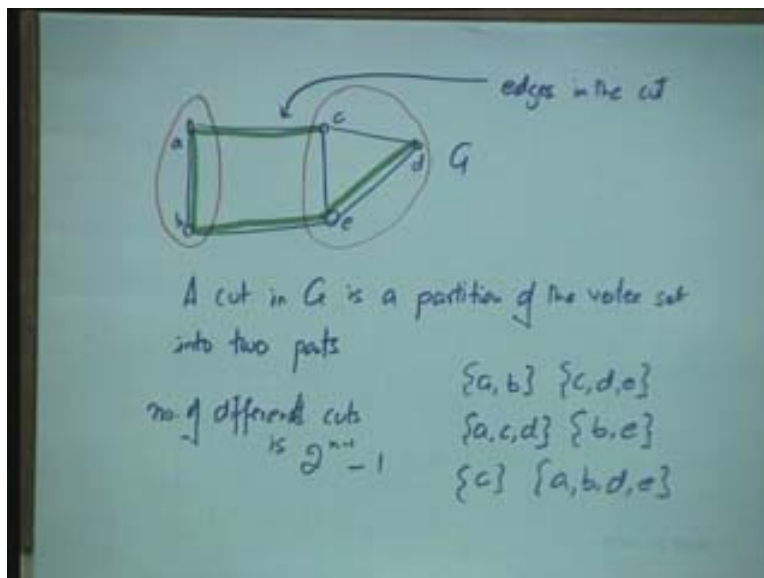 edges in the cut
a
c
d
G
b
e
A cut in G is a partition of the vertex set
into two parts
{a, b} {c, d, e}
no. of different cuts
is 2^{n-1} - 1
{a, c, d} {b, e}
{c} {a, b, d, e}